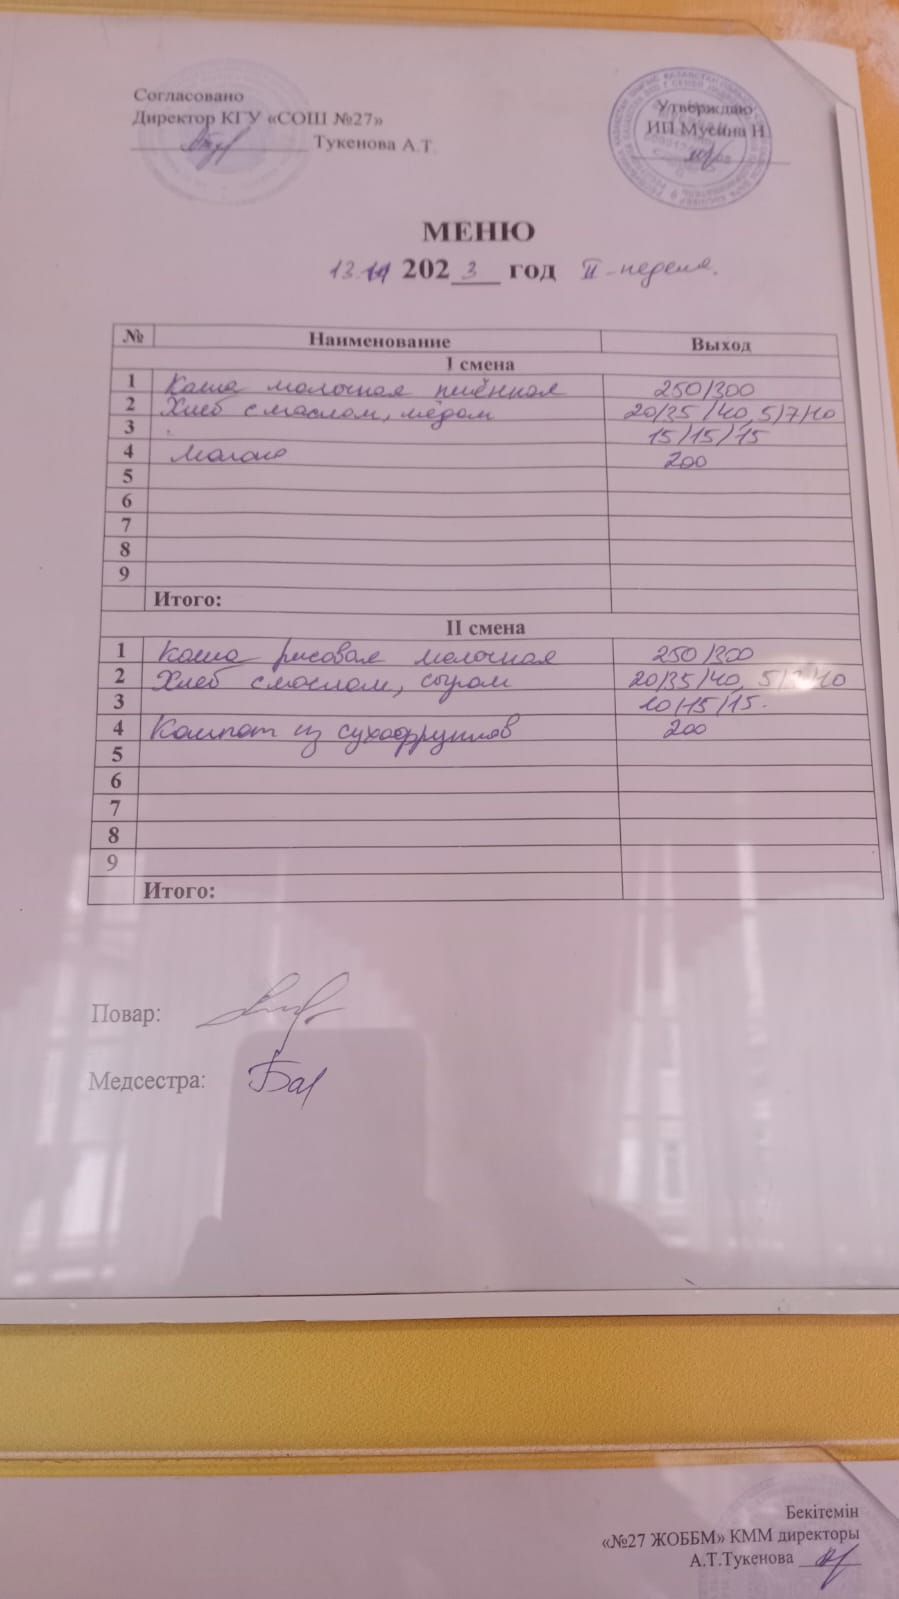 Согласовано
Директор КГУ «СОШ №27»
Тукенова А.Т.
Утверждаю
ИП Мусина Н
МЕНЮ
13.11 2023 год II - неделя.
№ Наименование Выход
I смена
1 Каша молочная пшённая 250/300
2 Хлеб с маслом, мёдом 20/35/40, 5/7/10
3 15/15/15
4 Молоко 200
5
6
7
8
9
Итого:
II смена
1 Каша рисовая молочная 250/300
2 Хлеб с маслом, сыром 20/35/40, 5/7/10
3 10/15/15.
4 Компот из сухофруктов 200
5
6
7
8
9
Итого:
Повар:
Медсестра:
Бекітемін
«№27 ЖОББМ» КММ директоры
А.Т.Тукенова